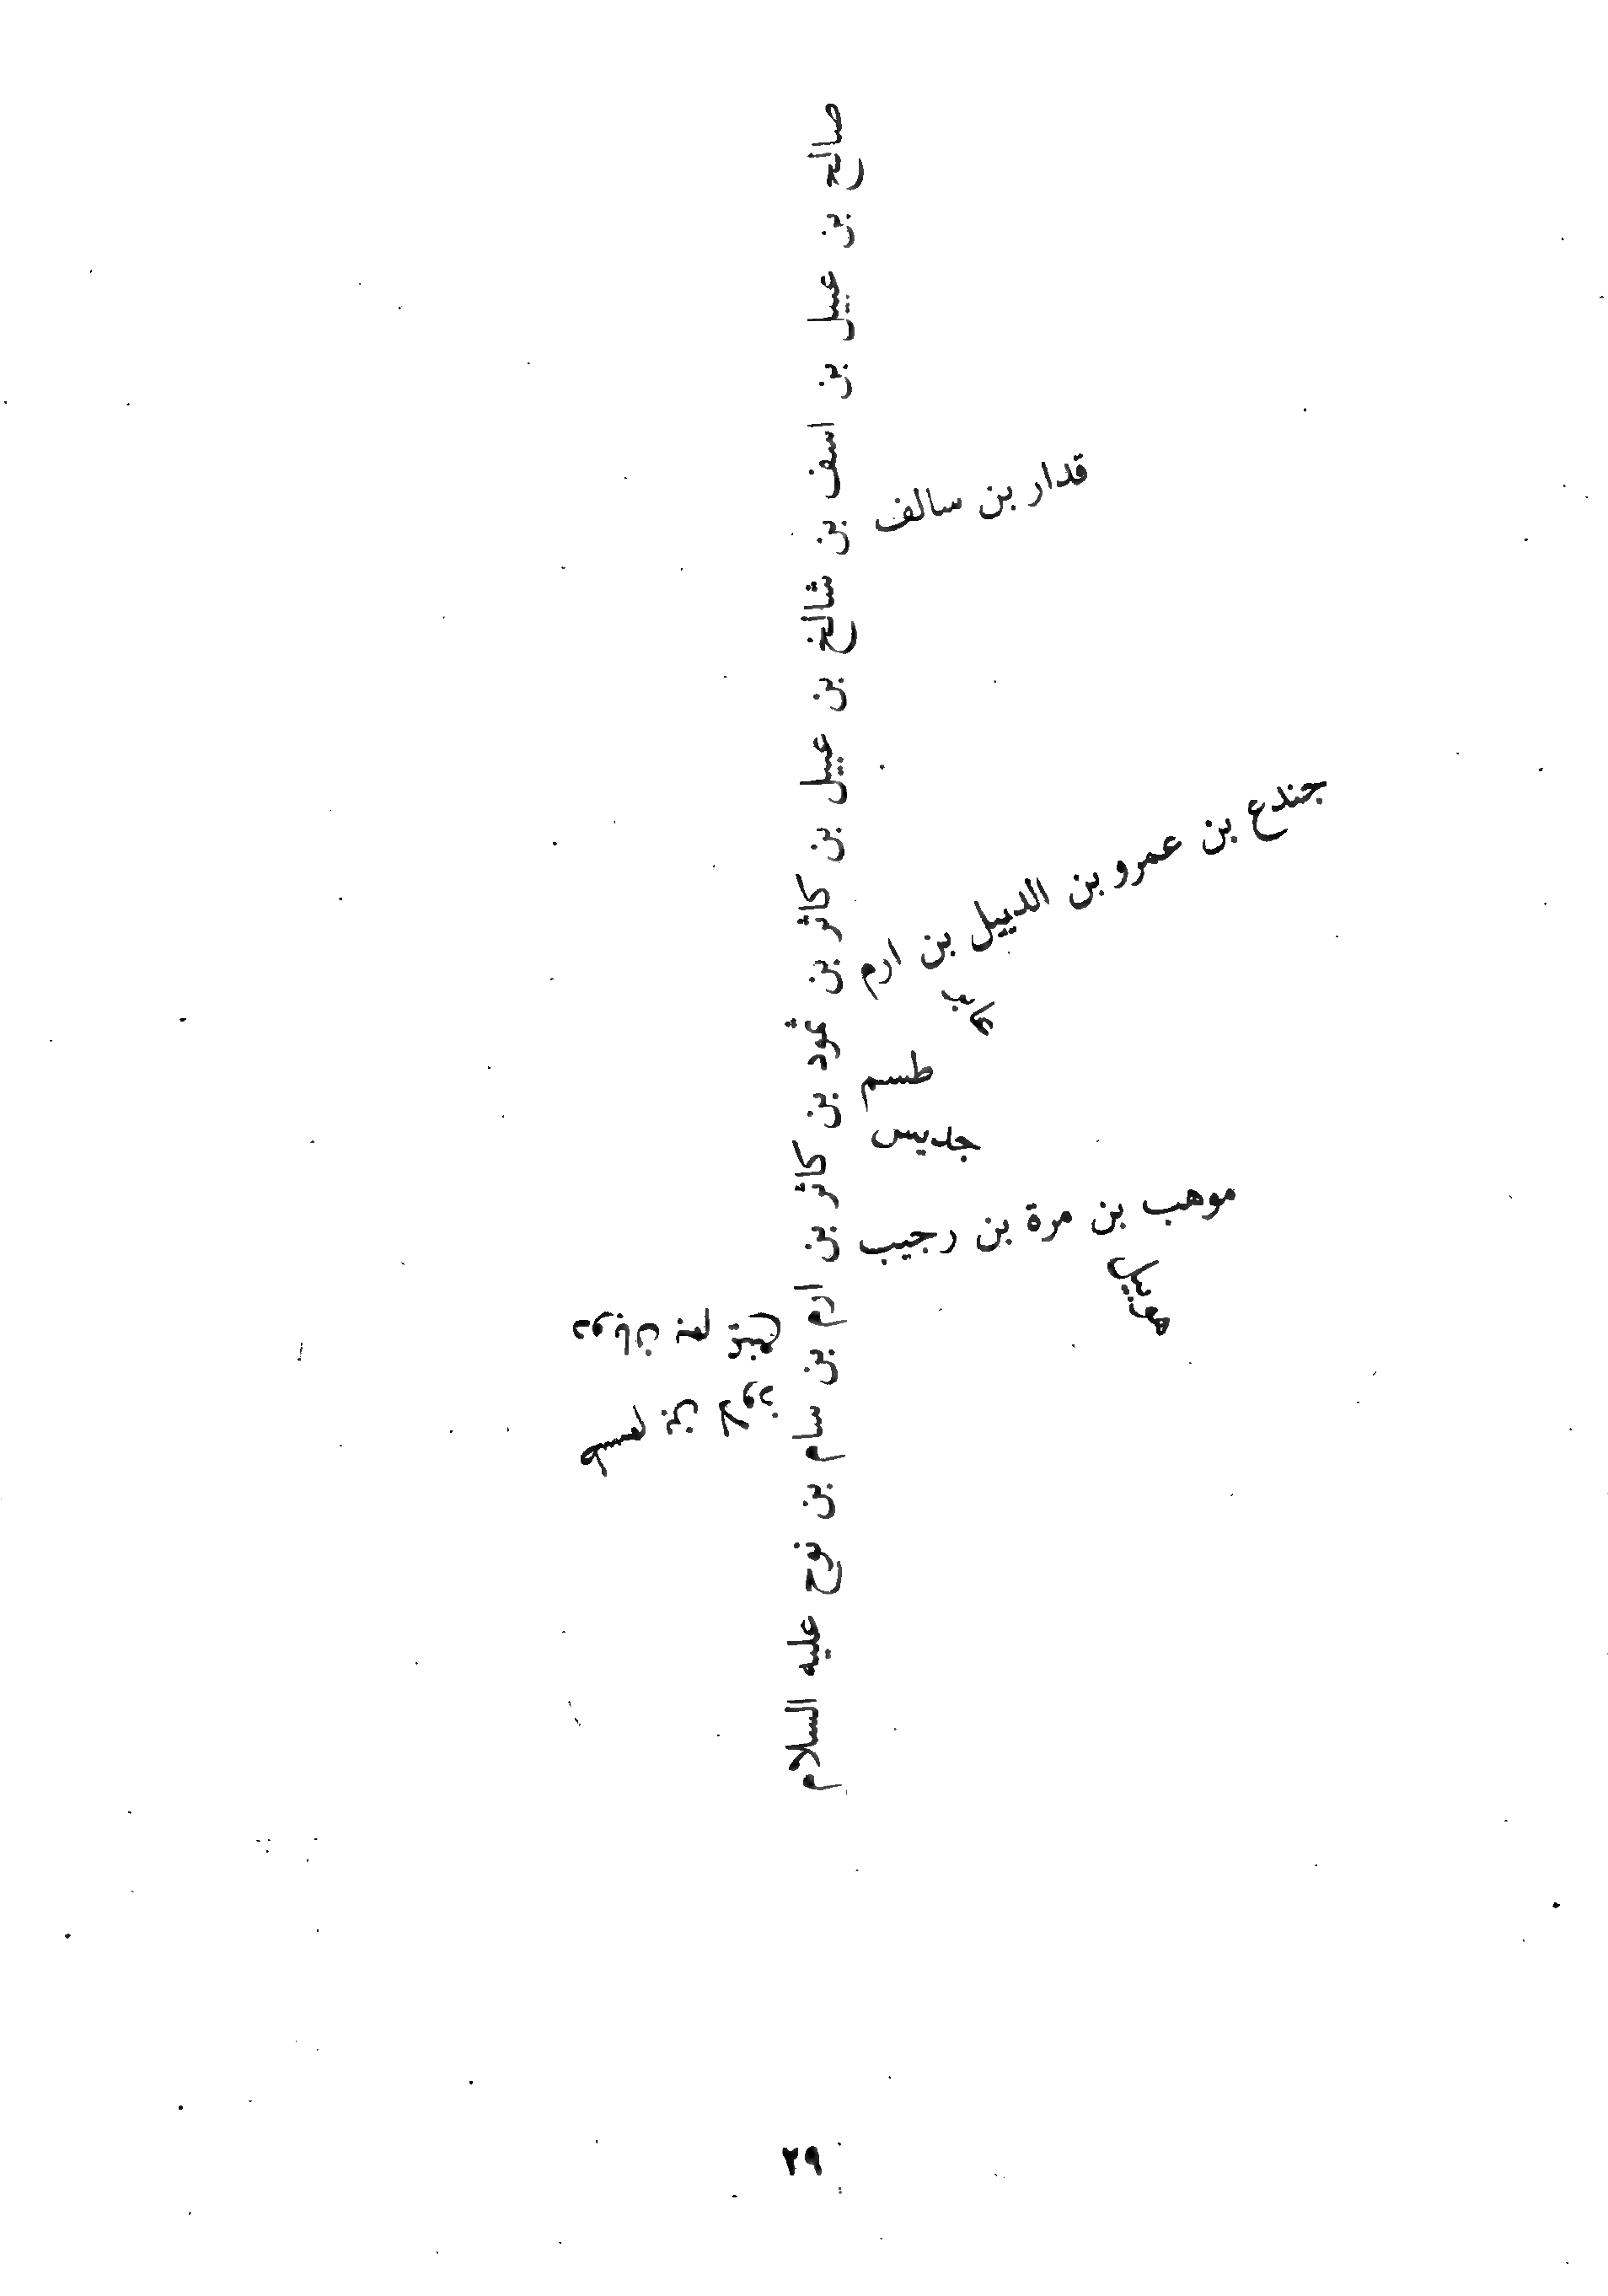 صالح بن عبيل بن اسف بن شالخ بن عبيل بن كاثر بن ثمود بن كاثر بن ارم بن سام بن نوح عليه السلام
قدار بن سالف
جندع بن عمرو بن الدبيل بن ارم
طسم
جديس
موهب بن مرة بن رجيب
هوبيل
٢٩